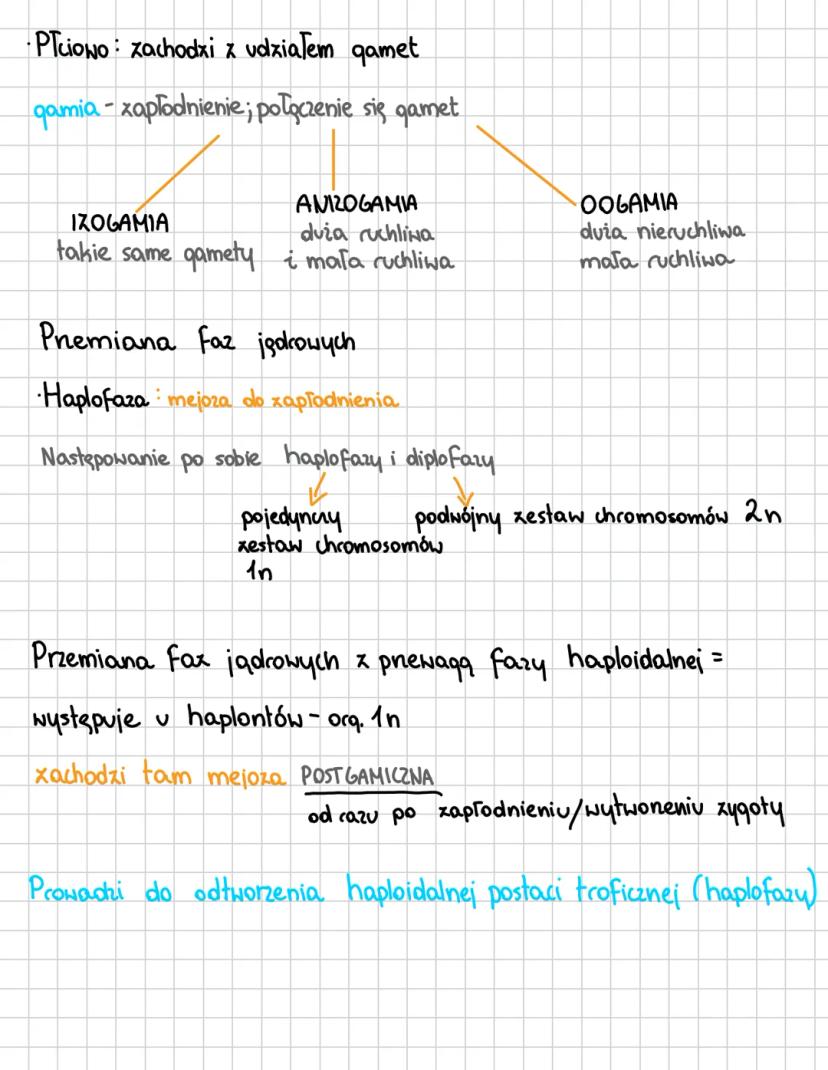 ·Płciowo: zachodzi z udziałem gamet
gamia - zapłodnienie; połączenie się gamet
IZOGAMIA
takie same gamety
ANIZOGAMIA
duża ruchliwa
i mała ruchliwa
OOGAMIA
duża nieruchliwa
mała ruchliwa
Przemiana faz jądrowych
·Haplofaza: mejoza do zapłodnienia
Następowanie po sobie haplofazy i diplofazy
pojedynczy
zestaw chromosomów
1n
podwójny zestaw chromosomów 2n
Przemiana faz jądrowych z przewagą fazy haploidalnej =
występuje u haplontów - org. 1n
zachodzi tam mejoza POSTGAMICZNA
od razu po zapłodnieniu/wytworzeniu zygoty
Prowadzi do odtworzenia haploidalnej postaci troficznej (haplofazy)